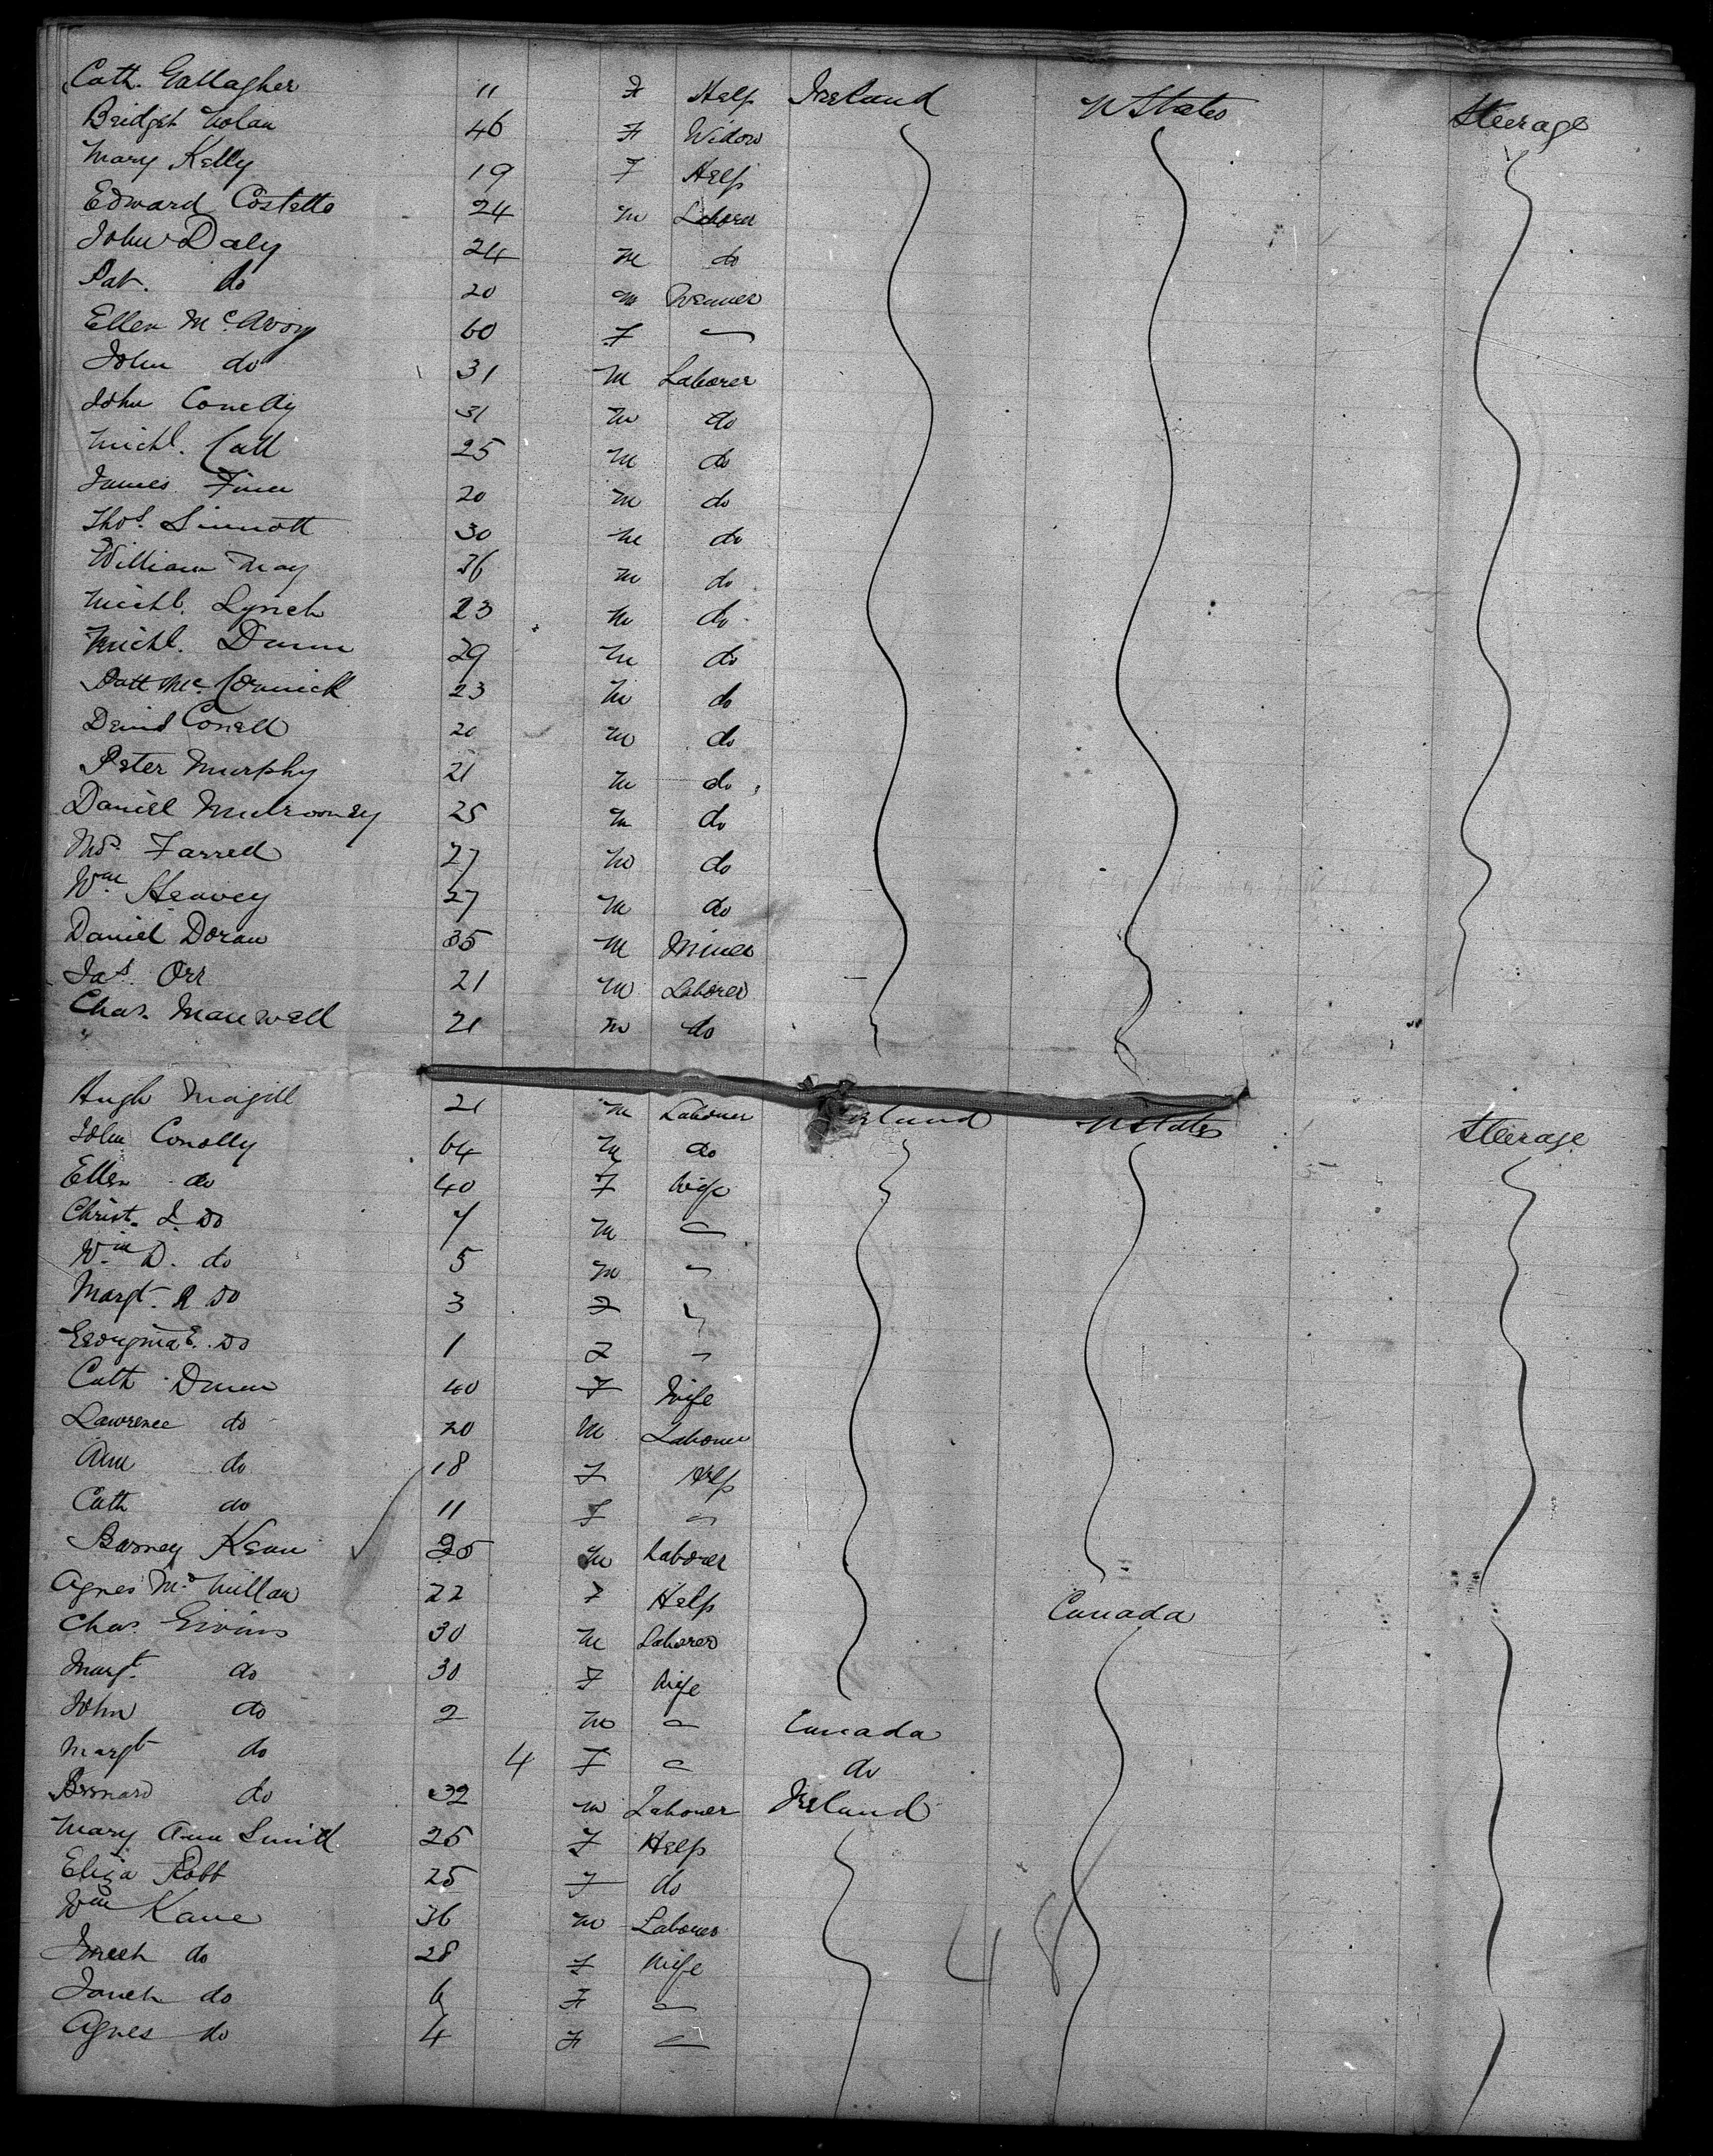 Cath. Gallagher 11 F Help Ireland U States Steerage
Bridget Nolan 46 F Widow
Mary Kelly 19 F Help
Edward Costello 24 m Laborer
John Daly 24 m do
Pat. do 20 m
Ellen McAvoy 60 F
John do 31 m Laborer
John Conelly 31 m do
Michl. Call 25 m do
James Finn 20 m do
Thos. Sinnott 30 m do
William May 36 m do
Michl. Lynch 23 m do
Michl. Dunn 29 m do
Patt McCormick 23 m do
David Conell 20 m do
Peter Murphy 21 m do
Daniel Mulrooney 25 m do
Farrell 27 m do
Wm Heavey 27 m do
Daniel Doran 35 m Miner
Jas. Orr 21 m Laborer
Chas. Maxwell 21 m do
Hugh Magill 21 m Laborer Ireland U States Steerage
John Conolly 64 m do
Ellen do 40 F Wife
Christ. J. do 7 m
Wm D. do 5 m
Margt. R do 3 F
Georgina E. do 1 F
Cath Dunn 40 F Wife
Lawrence do 20 m Laborer
Ann do 18 F Help
Cath do 11 F
Barney Kean 25 m Laborer
Agnes McMillan 22 F Help Canada
Chas. Givins 30 m Laborer
Margt. do 30 F Wife
John do 2 m Canada
Margt do 4 F do
Bernard do 32 m Laborer Ireland
Mary Ann Smith 25 F Help
Eliza Robb 25 F do
Wm Kane 36 m Laborer
do 28 F Wife
Janet do 6 F
Agnes do 4 F
48